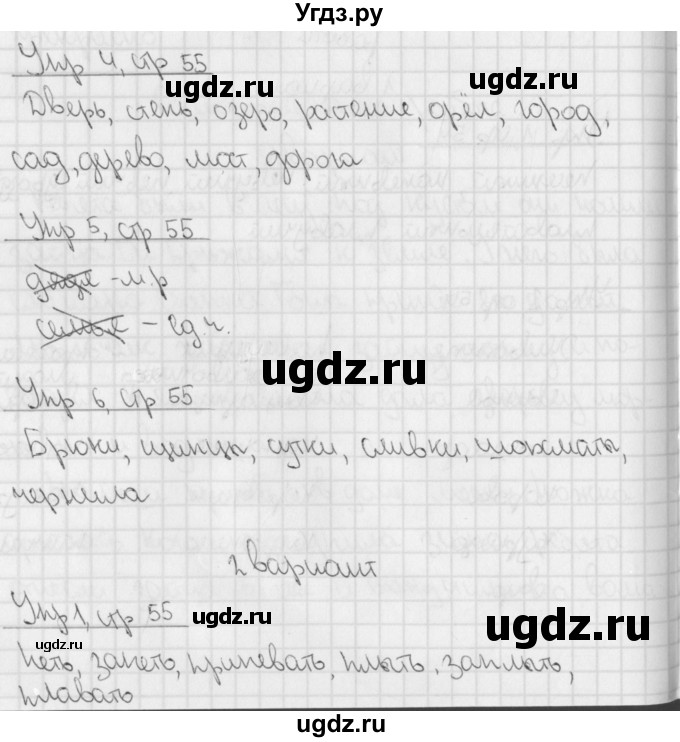 Угдз.ру
Упр 4, стр 55
ugdz.ru ugdz.ru
Дверь, степь, озеро, растение, орёл, город,
сад, дерево, мост, дорога
Упр 5, стр 55
дядя - м.р
семья - ед.ч.
ugdz.ru ugdz.ru
Упр 6, стр 55
Брюки, щипцы, сутки, сливки, шахматы,
чернила
2 вариант
Упр 1, стр 55 ugdz.ru ugdz.ru
ugdz.ru
Петь, запеть, припевать, плыть, заплыть,
плавать
ugdz.ru